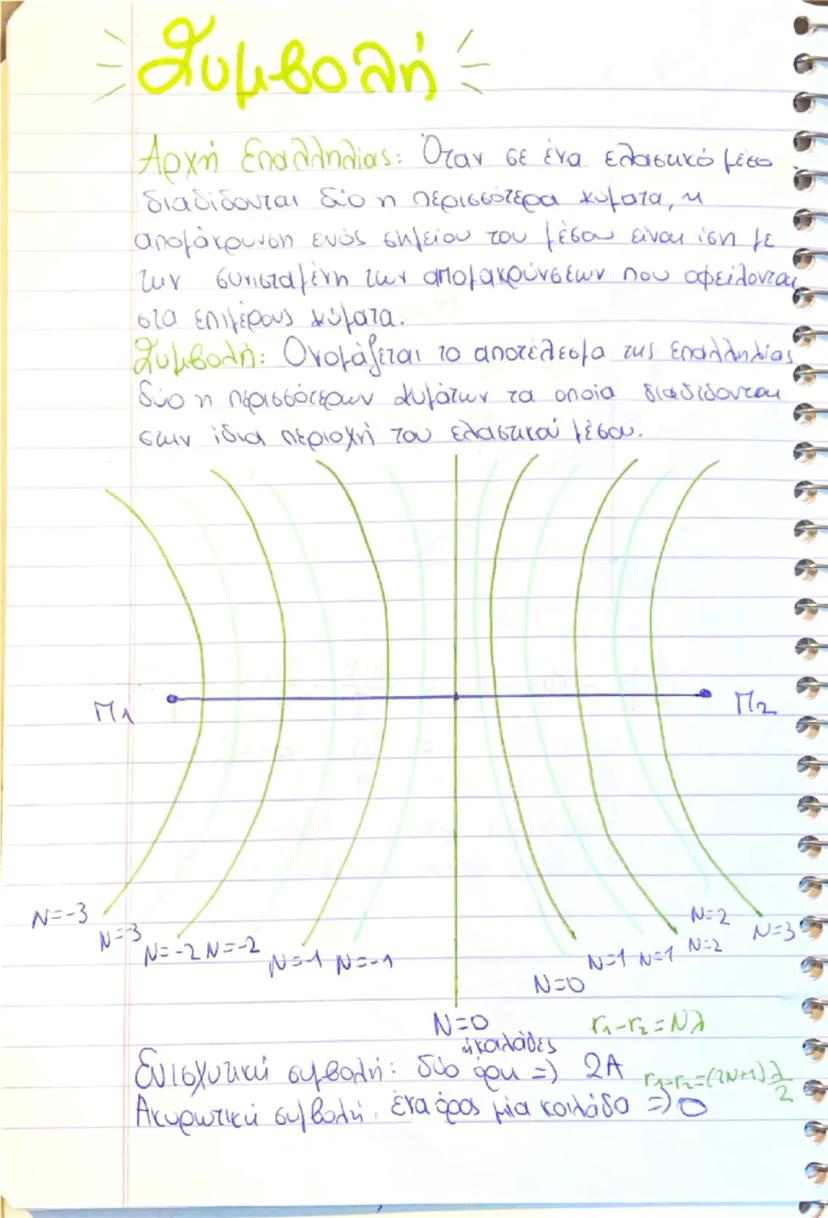 Συμβολή
Αρχή Επαλληλίας: Όταν σε ένα ελαστικό μέσο
διαδίδονται δύο η περισσότερα κύματα, η
απομάκρυνση ενός σημείου του μέσου είναι ίση με
την συνισταμένη των απομακρύνσεων που οφείλονται
στα επιμέρους κύματα.
Συμβολή: Ονομάζεται το αποτέλεσμα της επαλληλίας
δύο η περισσότερων κυμάτων τα οποία διαδίδονται
στην ίδια περιοχή του ελαστικού μέσου.
Π1 Π2
N=-3 N=3 N=-2 N=-2 N=-1 N=-1 N=0 N=0 N=1 N=1 N=2 N=2 N=3
r1-r2=Nλ
ή κοιλάδες
Ενισχυτική συμβολή: δύο όρη => 2A r1-r2=(2N+1)λ/2
Ακυρωτική συμβολή: ένα όρος μία κοιλάδα => 0